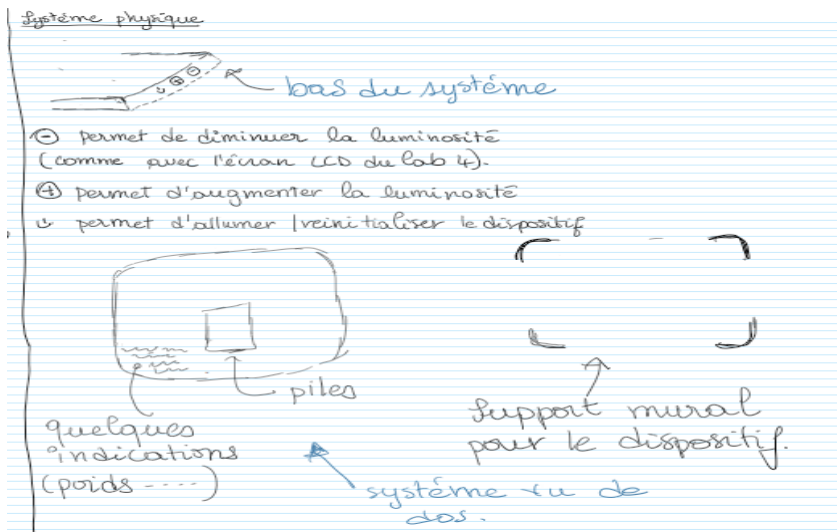 Système physique
bas du système
⊖ permet de diminuer la luminosité
(comme avec l'écran LCD du lab 4).
⊕ permet d'augmenter la luminosité
permet d'allumer / reinitialiser le dispositif
piles
quelques
indications
(poids ----)
Support mural
pour le dispositif.
système vu de
dos.